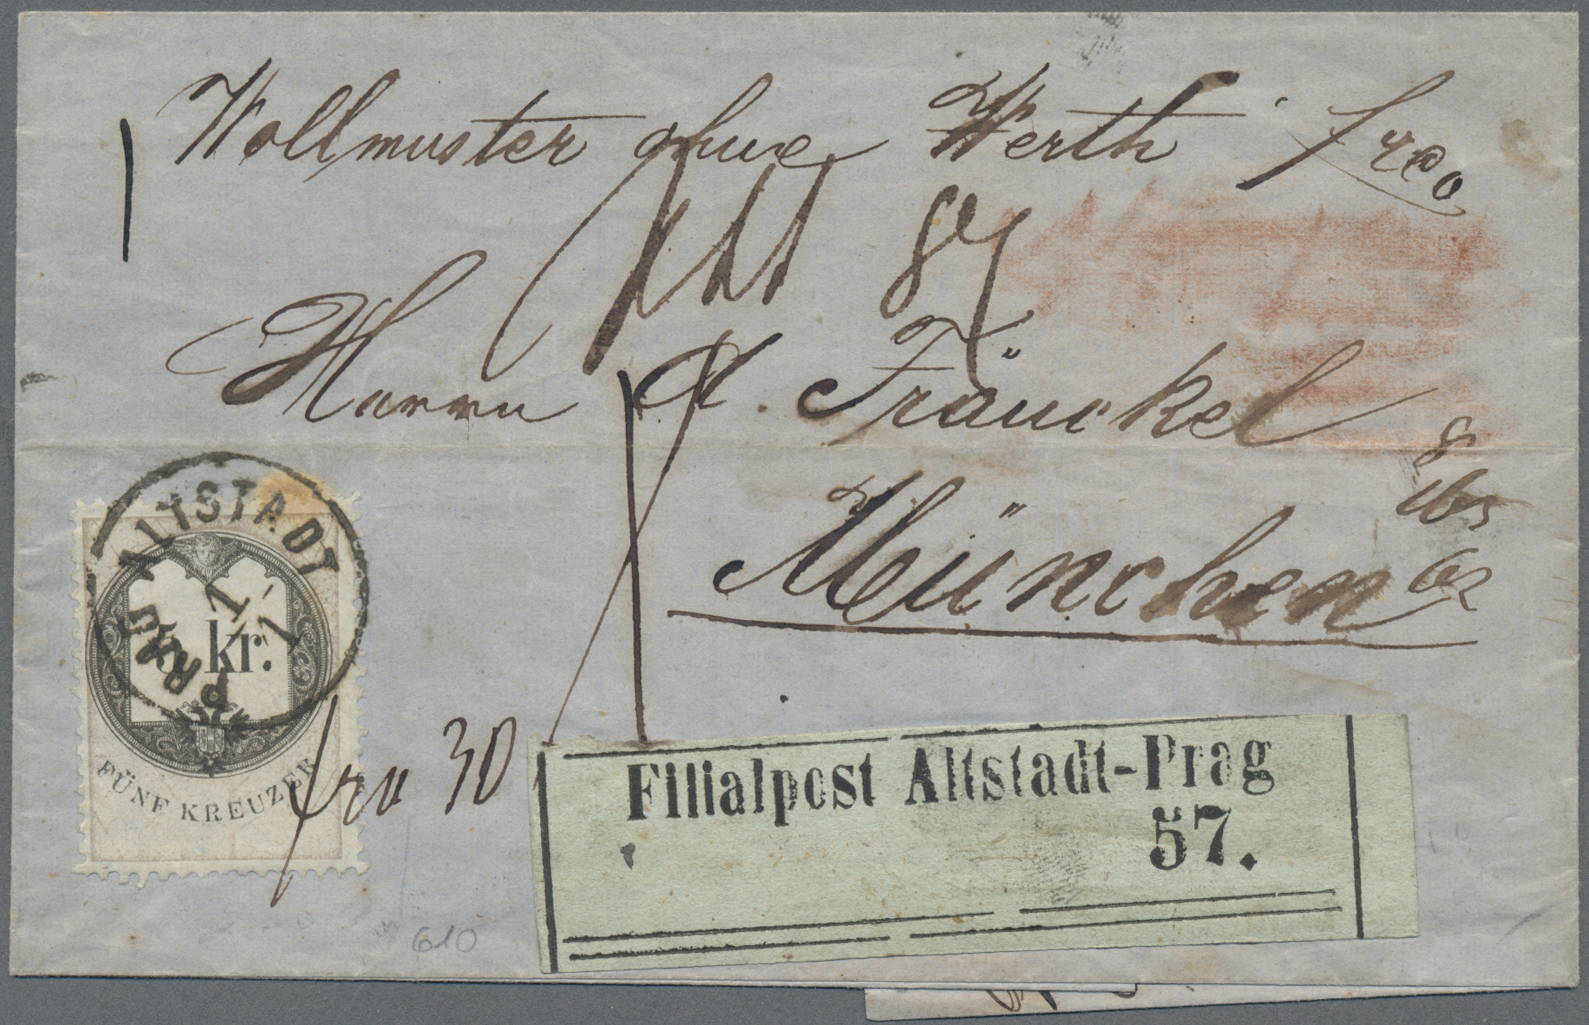 Wollmuster ohne Werth frco
87
Herrn A. Fränckel
München
8
ALTSTADT
PRAG
1
1
5 kr.
FÜNF KREUZER
fro 30
Filialpost Altstadt-Prag
57.
610